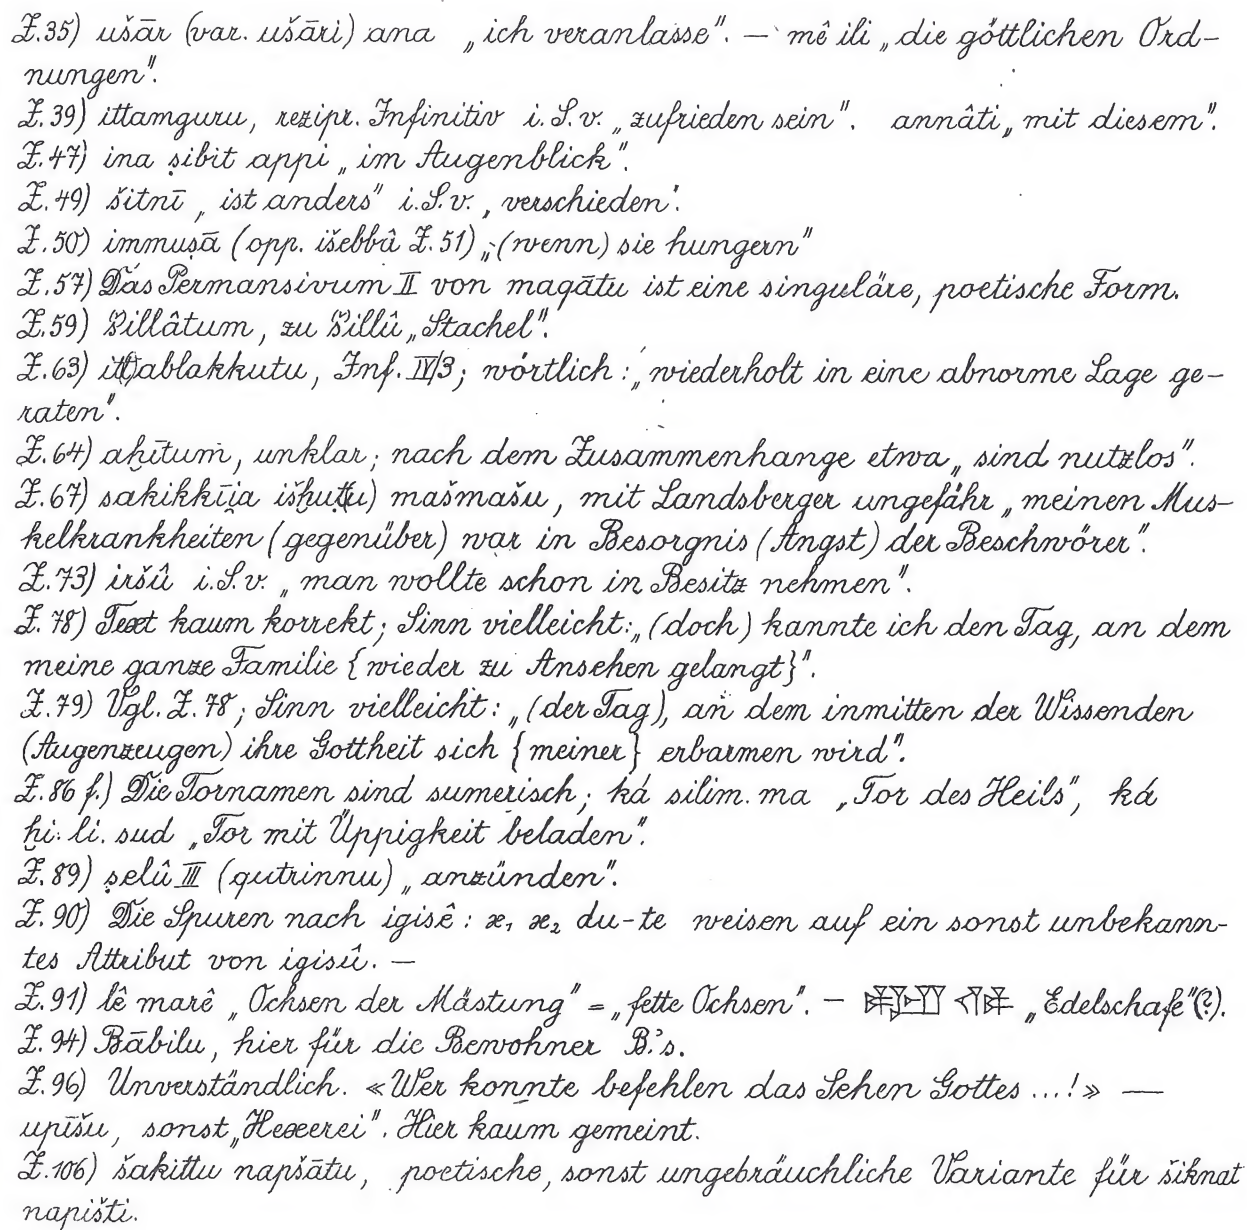 Z.35) ušār (var. ušāri) ana „ich veranlasse". — mê ili „die göttlichen Ord-
nungen".
Z.39) ittamguru, rezipr. Infinitiv i.S.v. „zufrieden sein". annâti „mit diesem".
Z.47) ina ṣibit appi „im Augenblick".
Z.49) šitnī „ist anders" i.S.v. „verschieden".
Z.50) immuṣā (opp. išebbâ Z.51) „(wenn) sie hungern"
Z.57) Das Permansivum II von maqātu ist eine singuläre, poetische Form.
Z.59) ṣillâtum, zu ṣillû „Stachel".
Z.63) it(t)ablakkutu, Inf. IV/3; wörtlich: „wiederholt in eine abnorme Lage ge-
raten".
Z.64) aḫītum, unklar; nach dem Zusammenhange etwa „sind nutzlos".
Z.67) sakikkīi̯a išḫuṭ(u) mašmašu, mit Landsberger ungefähr „meinen Mus-
kelkrankheiten (gegenüber) war in Besorgnis (Angst) der Beschwörer".
Z.73) iršû i.S.v. „man wollte schon in Besitz nehmen".
Z.78) Text kaum korrekt; Sinn vielleicht: „(doch) kannte ich den Tag, an dem
meine ganze Familie {wieder zu Ansehen gelangt}".
Z.79) Vgl. Z.78; Sinn vielleicht: „(der Tag), an dem inmitten der Wissenden
(Augenzeugen) ihre Gottheit sich {meiner} erbarmen wird".
Z.86 f.) Die Tornamen sind sumerisch; ká silim.ma „Tor des Heils", ká
ḫi.li.sud „Tor mit Üppigkeit beladen".
Z.89) ṣelû III (qutrinnu) „anzünden".
Z.90) Die Spuren nach igisê: x₁ x₂ du-te weisen auf ein sonst unbekann-
tes Attribut von igisû. —
Z.91) lê marê „Ochsen der Mästung" = „fette Ochsen". — „Edelschafe"(?).
Z.94) Bābilu, hier für die Bewohner B.'s.
Z.96) Unverständlich. «Wer konnte befehlen das Sehen Gottes ...!» —
upīšu, sonst „Hexerei". Hier kaum gemeint.
Z.106) šakittu napšātu, poetische, sonst ungebräuchliche Variante für šiknat
napišti.